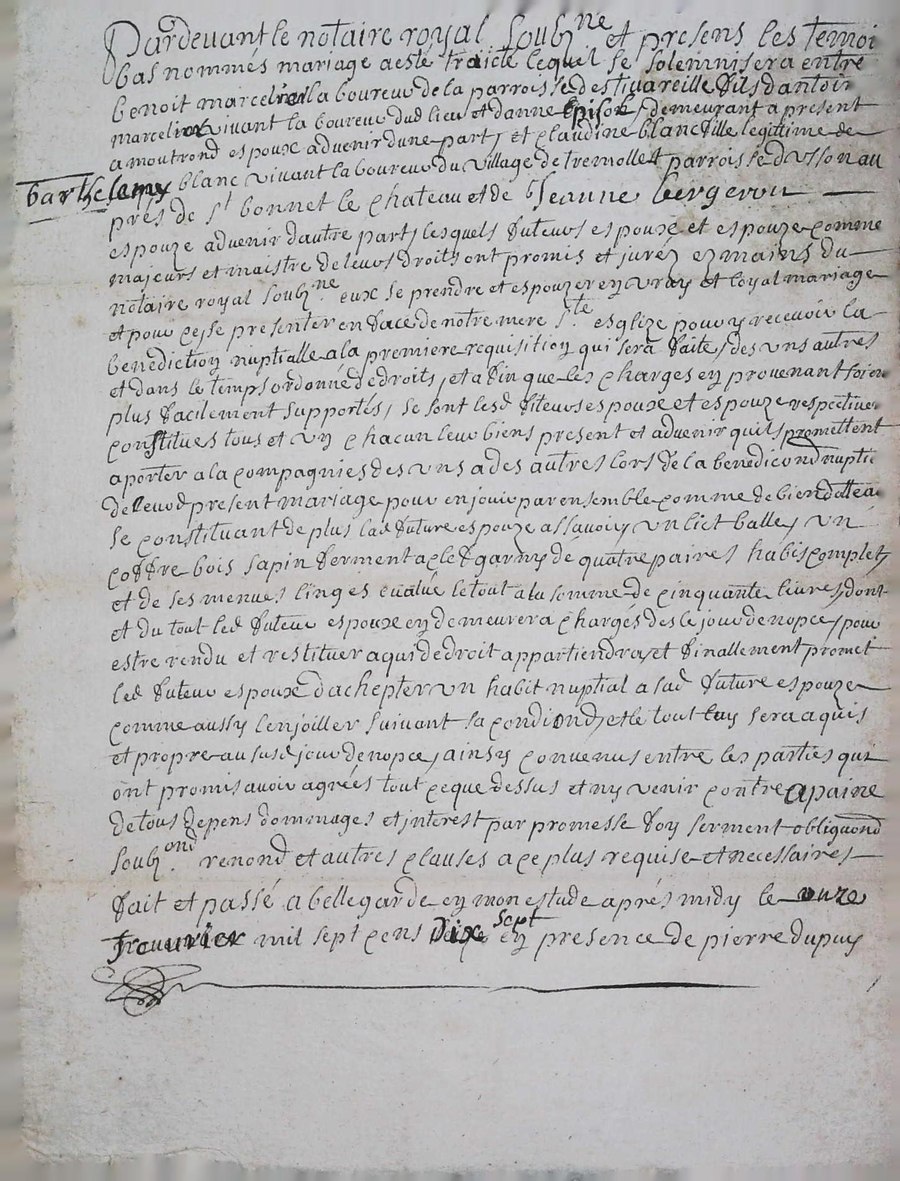 Pardevant le notaire royal soubz.ne et presens les temoi
bas nommés mariage a esté traicté lequel se solemnisera entre
benoit marcelin laboureur de la parroisse destivareille fils dantoin
marcelin vivant laboureur dud lieu et danne Epison, demeurant a present
a moutrond espoux advenir dune part, et Claudine blanc fille legittime de
barthelemy blanc vivant laboureur du village de tremollet parroisse dusson au
prés de st bonnet le chateau et de Jeanne bergeron
espouze advenir dautre part, lesquels futeurs espoux et espouze comme
majeurs et maistre de leurs droits ont promis et juréz ez mains du
notaire royal soubz.ne eux se prendre et espouzer en vray et loyal mariage
et pour ce, se presenter en face de notre mere s.te esglize pour y recevoir la
benediction nuptialle a la premiere requisition qui sera faite, des uns autres
et dans le temps ordonné de droits, et afin que les charges en provenant soien
plus facilement supportés, se sont lesd futeurs espoux et espouze respective
constitues tous et un chacun leur biens present et advenir quils promettent
aporter a la compagnies des uns a des autres lors de la benedicond nuptie
de leurd present mariage pour en jouir par ensemble comme de bien dottea
se constituant de plus lad future espouze assavoir, un lict balle, un
coffre bois sapin ferment a clef garny de quatre paires habis complets
et de ses menues linges evalué le tout a la somme de cinquante livres, dont
et du tout led futeur espoux en demeurera chargés des le jour de nopce, pour
estre rendu et restituer a qui de droit appartiendra, et finallement promet
led futeur espoux dachepter un habit nuptial a sad future espouze
comme aussy lenjoiller suivant sa condiond, et le tout luy sera aquis
et propre au susd jour de nopce, ainsy convenus entre les parties qui
ont promis avoir agreés tout ce que dessus et ny venir contre apaine
de tous depens dommages et interest par promesse foy serment obligaond
soubz.ond renond et autres clauses a ce plus requise et necessaires
fait et passé a bellegarde en mon estude aprés midy le onze
feuvrier mil sept cens Dix sept en presence de pierre dupuy